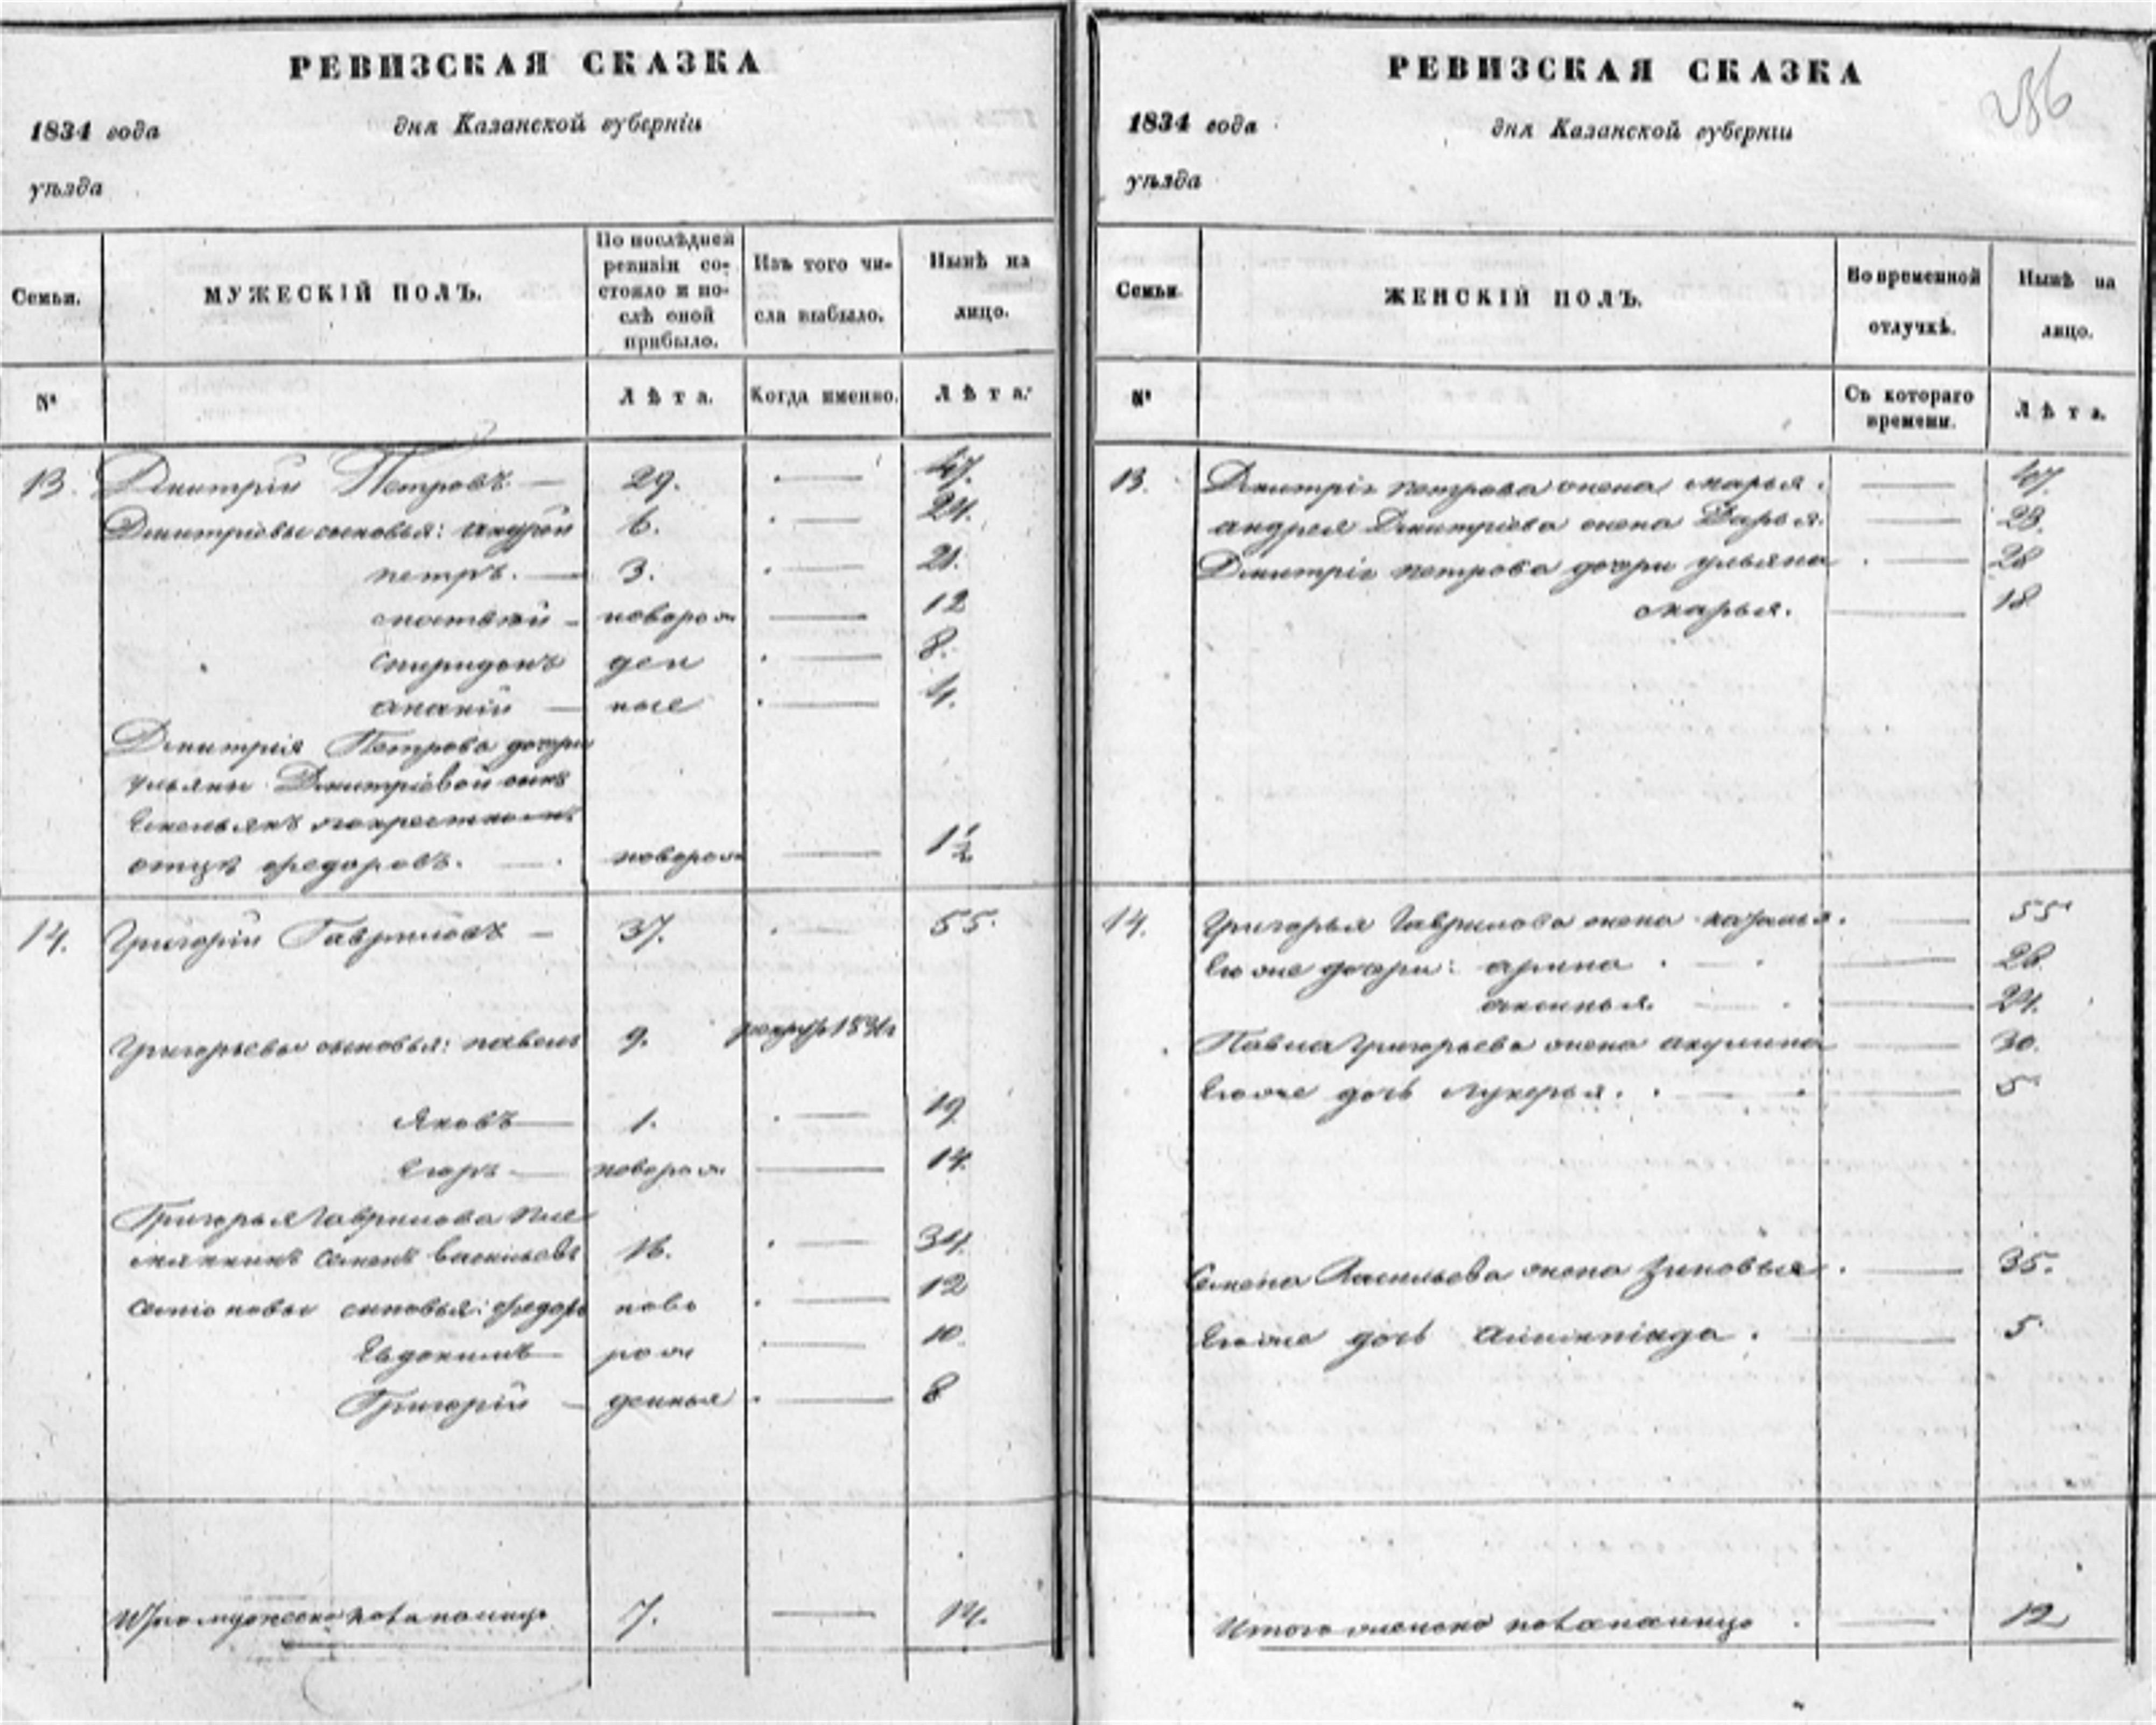 РЕВИЗСКАЯ СКАЗКА
1834 года дня Казанской губерніи
уѣзда
Семьи. МУЖЕСКІЙ ПОЛЪ. По послѣдней ревизіи состояло и послѣ оной прибыло. Изъ того числа выбыло. Нынѣ на лицо.
№ Лѣта. Когда именно. Лѣта.
13. Дмитрій Петровъ — 29. — 47.
Дмитріевы сыновья: андрей 6. — 24.
петръ. — 3. — 21.
матвей — новорож — 12
спиридонъ ден — 8.
ананій — ные — 4.
Дмитрія Петрова дочери
ульяны Дмитріевой сынъ
Емельянъ покрестному
отцу федоровъ. — новорож — 1½
14. Григорій Гавриловъ — 37. — 55.
Григорьевы сыновья: павелъ 9.
Яковъ — 1. — 19
Егоръ — новорож — 14.
Григорья Гаврилова пле
мянникъ семенъ васильевъ 16. — 34.
семеновы сыновья: федоръ ново — 12
Евдокимъ рож — 10.
Григорій — денныя — 8
Итого мужеска пола налицо 7. — 14.
РЕВИЗСКАЯ СКАЗКА
1834 года дня Казанской губерніи
уѣзда
Семьи. ЖЕНСКІЙ ПОЛЪ. Во временной отлучкѣ. Нынѣ на лицо.
№ Съ котораго времени. Лѣта.
13. Дмитрія петрова жена марья. — 47.
андрея Дмитріева жена Дарья. — 23.
Дмитрія петрова дочери ульяна — 28
марья. — 18
14. Григорья Гаврилова жена наталья. — 55
Ево же дочери: арина — 26.
аксинья. — 24.
Павла Григорьева жена акулина — 30.
Ево же дочь лукерья. — 5
Семена Васильева жена Зиновья. — 35.
Ево же дочь — 5
Итого женска пола налицо — 12